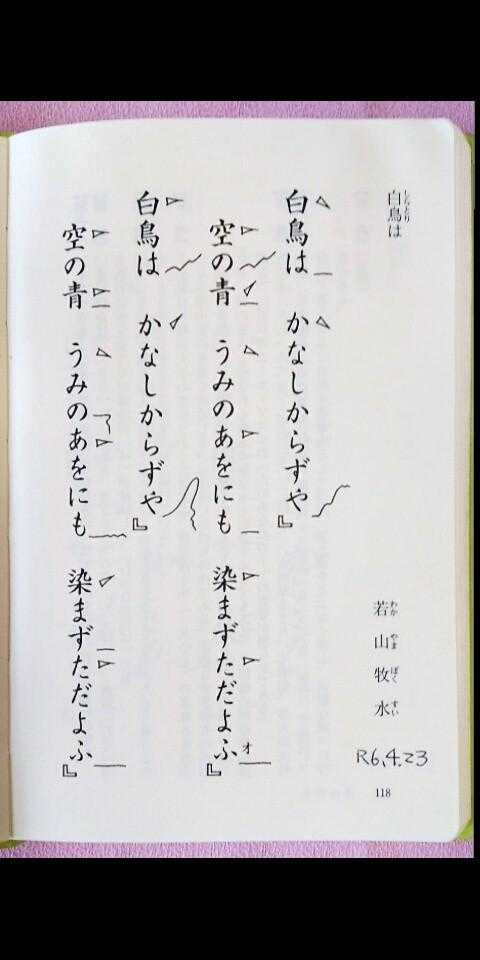 白鳥は
しらとり
若山牧水
わかやまぼくすい
白鳥は かなしからずや』
空の青 うみのあをにも 染まずただよふ』
オ
白鳥は かなしからずや』
空の青 うみのあをにも 染まずただよふ』
R6.4.23
118